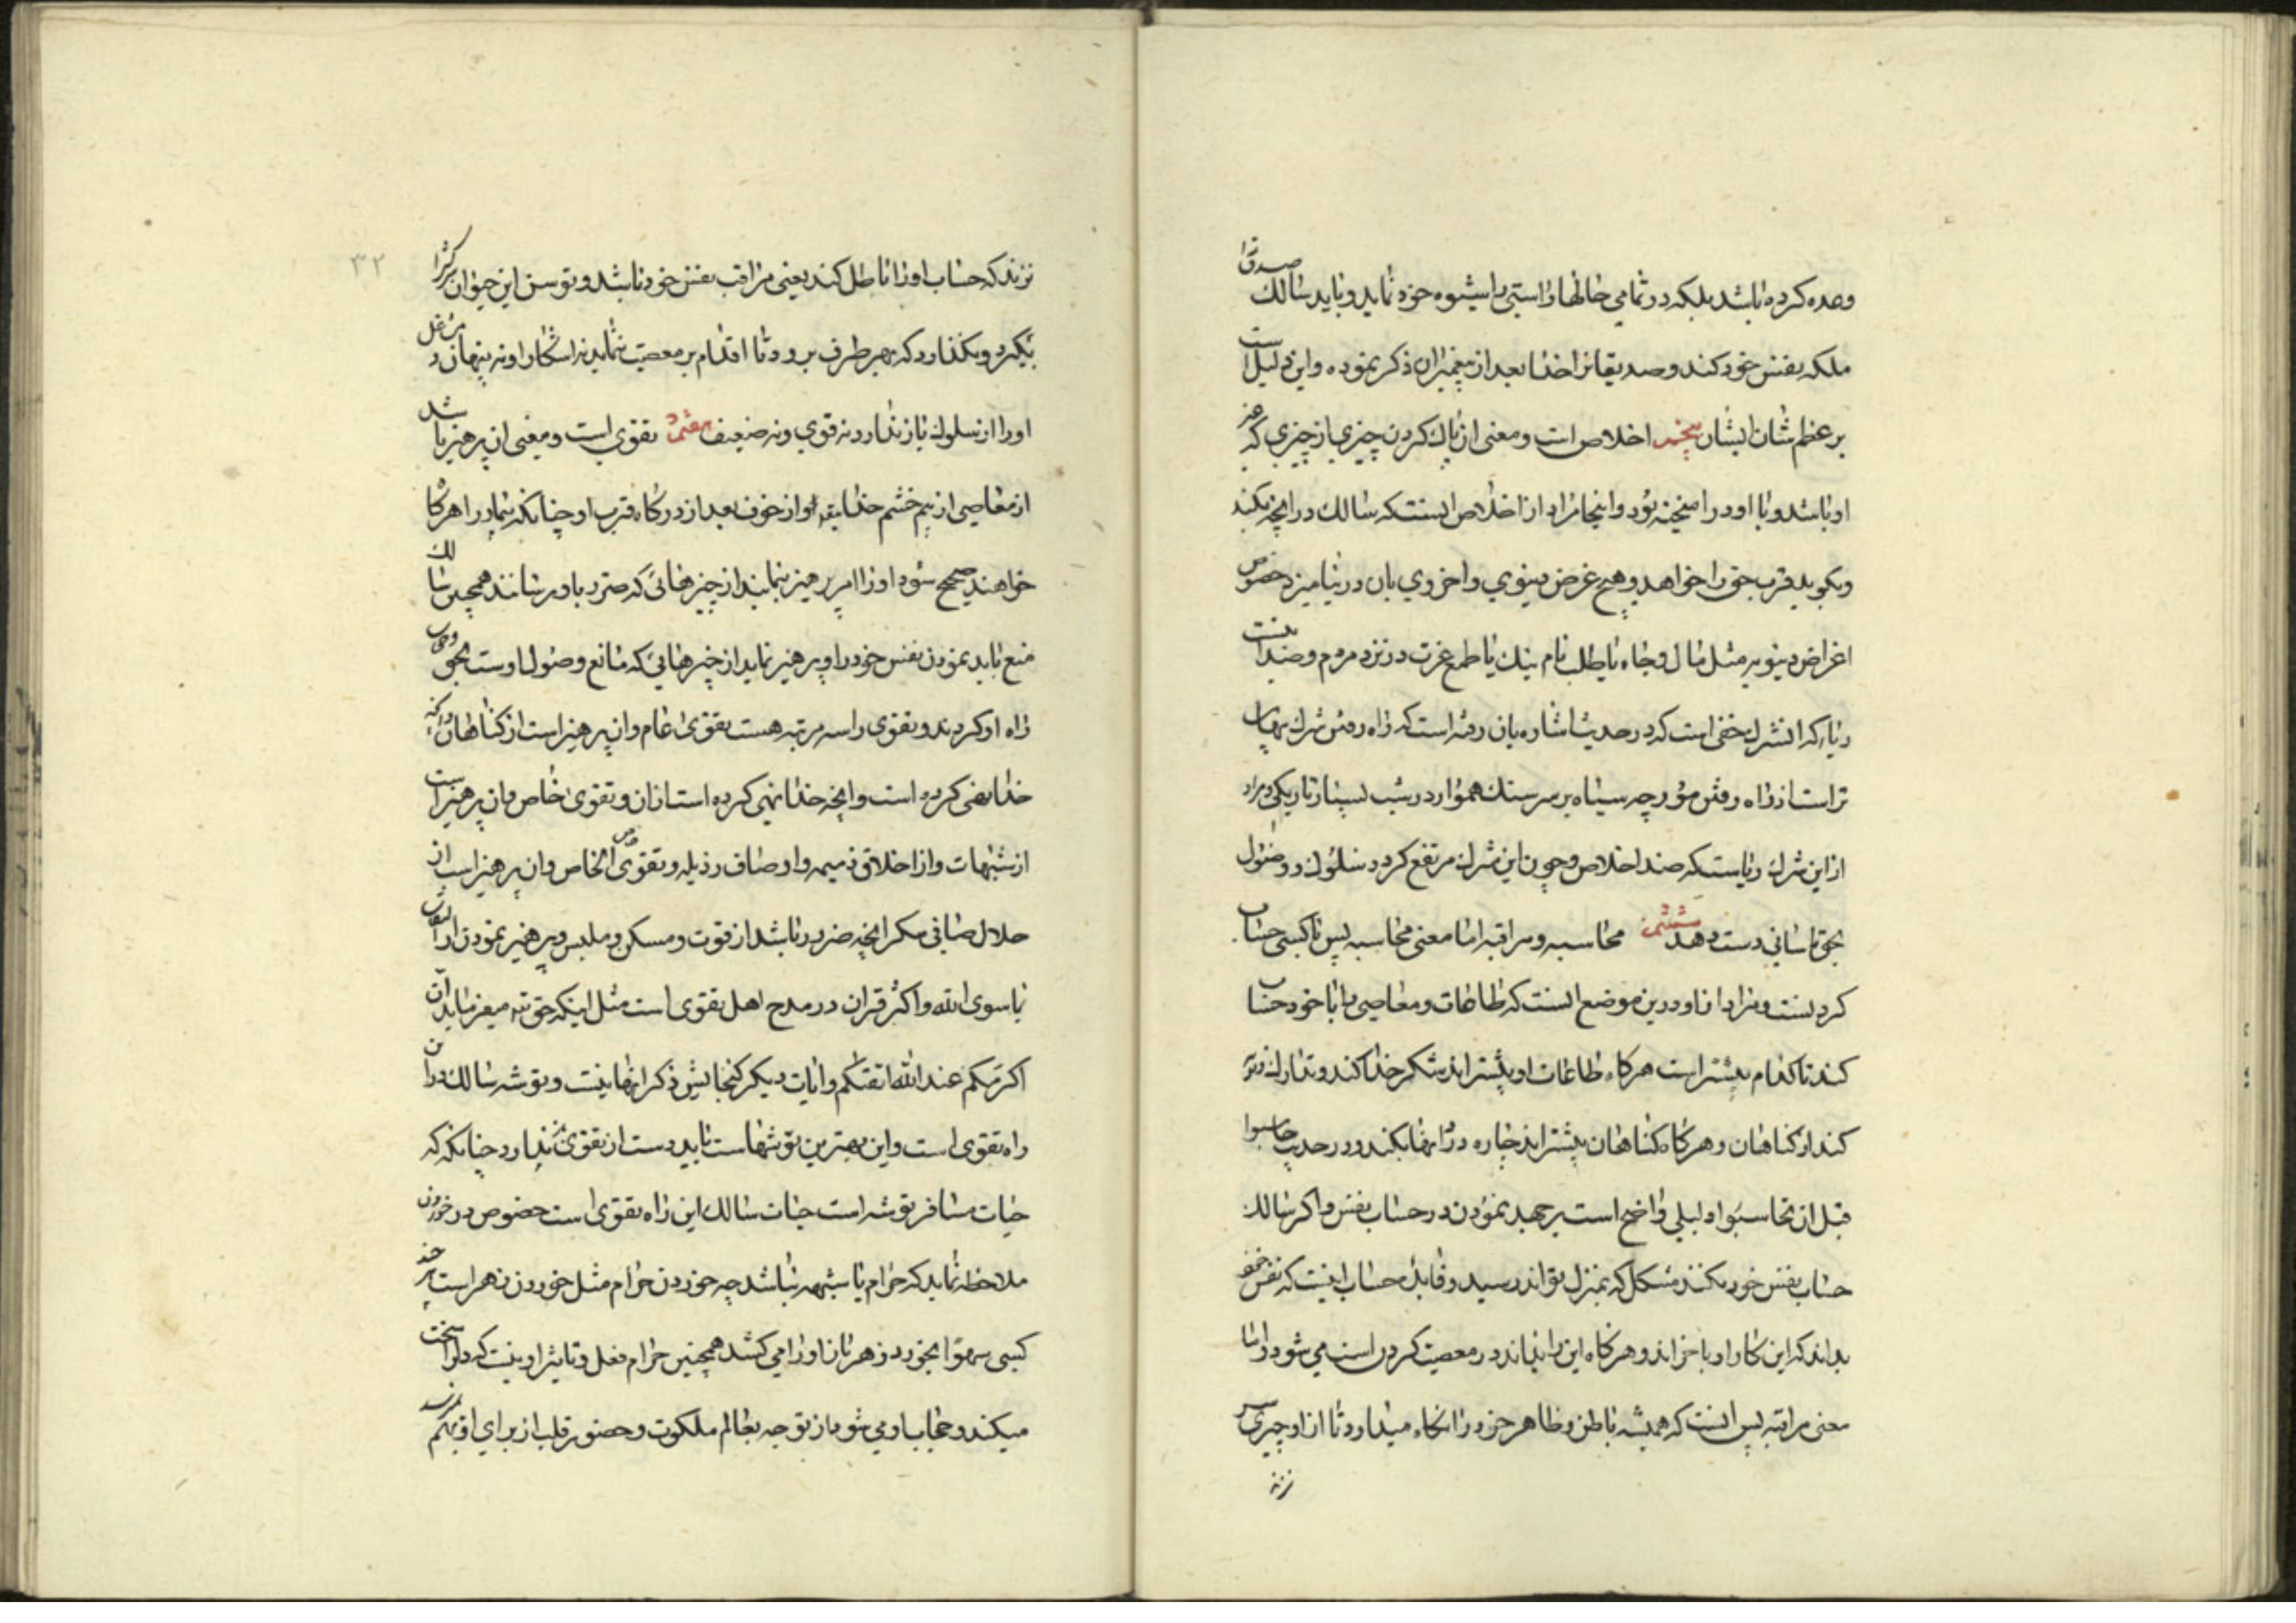 وعده کرده باشد بلکه در تمامی حالها راستی را شیوه خود نماید و باید سالک صدق را
ملکه نفس خود کند و صدیقانرا خدا بعد از پیغمبران ذکر نموده و این دلیل است
بر عظم شان ایشان پنجم اخلاص است و معنی ان پاک کردن چیزی از چیزی که غیر
او باشد و با او در امیخته بود و اینجا مراد از اخلاص انست که سالک در انچه بکند
و بکوید قرب حق را خواهد و هیچ غرض دنیوی و اخروی بان در نیامیزد خصوص
اغراض دنیویه مثل مال و جاه یا طلب نام نیک یا طمع عزت در نزد مردم و ضد انست
ریا که ان شرک خفی است که در حدیث اشاره بان رفته است که راه رفتن شرک پنهان
تر است از راه رفتن مورچه سیاه بر سر سنک هموار در شب بسیار تاریکی و مراد
از این شرک ریاست که ضد اخلاص و چون این شرک مرتفع کردد سلوک و وصول
بحق باسانی دست دهد ششم محاسبه و مراقبه اما معنی محاسبه پس با کسی حساب
کردنست و مراد از او درین موضع انست که طاعات و معاصی را با خود حساب
کند تا کدام بیشتر است هرکاه طاعات او بیشتر اند شکر خدا کند و تدارک و توبه
کند از کناهان و هرکاه کناهان بیشتر اند چاره درد انها بکند و در حدیث حاسبوا
قبل ان تحاسبوا دلیلی واضح است بر جهد نمودن در حساب نفس و اکر سالک
حساب نفس خود نکند مشکل که بمنزل تواند رسید و فایده حساب اینست که نفس
بداند که این کار را و باخر اند و هرکاه این را نداند در معصیت کردن است می شود و اما
معنی مراقبه پس انست که همیشه باطن و ظاهر خود را نکاه میدارد تا از او چیزی سر
نزند
۳۲
نزند که حساب او را باطل کند یعنی مراقب نفس خود باشد و توسن این حیوان سرکش را
بکیرد و نکذارد که بهر طرف برود تا اقدام بر معصیت ننماید نه اشکارا و نه پنهان و شغل
او را از سلوک باز ندارد نه قوی و نه ضعیف هفتم تقوی است و معنی ان پرهیز باشد
از معاصی از بیم خشم خدایتعالی و از خوف بعد از درکاه قرب او چنانکه بیمار را هرکاه
خواهند صحیح شود او را امر پرهیز بنمایند از چیزهائی که ضرر باو رسانند همچنین سالک
منع باید نمودن نفس خود را و پرهیز نماید از چیزهایی که مانع وصول اوست بحق و حجاب
راه او کردند و تقوی را سه مرتبه هست تقوی عام و ان پرهیز است از کناهان و انچه
خدا نهی کرده است و انچه خدا نهی کرده است از ان و تقوی خاص و ان پرهیز است
از شبهات و از اخلاق ذمیمه و اوصاف رذیله و تقوی خاص الخاص و ان پرهیز است از
حلال صافی مکر انچه ضرور باشد از قوت و مسکن و ملبس و پرهیز نمودن از التفات
با سوی الله و اکثر قران در مدح اهل تقوی است مثل اینکه حق تعالی میفرماید ان
اکرمکم عند الله اتقیکم و ایات دیکر کنجایش ذکر انها نیست و توشه سالک در این
راه تقوی است و این بهترین توشهاست باید دست از تقوی بر ندارد چنانکه که
حیات مسافر توشه است حیات سالک این راه تقوی است خصوص در خوردن
ملاحظه نماید که حرام یا شبهه نباشد چه خوردن حرام مثل خوردن زهر است هر چند
کسی سهوًا بخورد زهر باز او را می کشد همچنین حرام فعل و تاثیر او اینست که دل را سخت
میکند و حجاب او می شود از توجه بعالم ملکوت و حضور قلب از برای او بهم نرسد